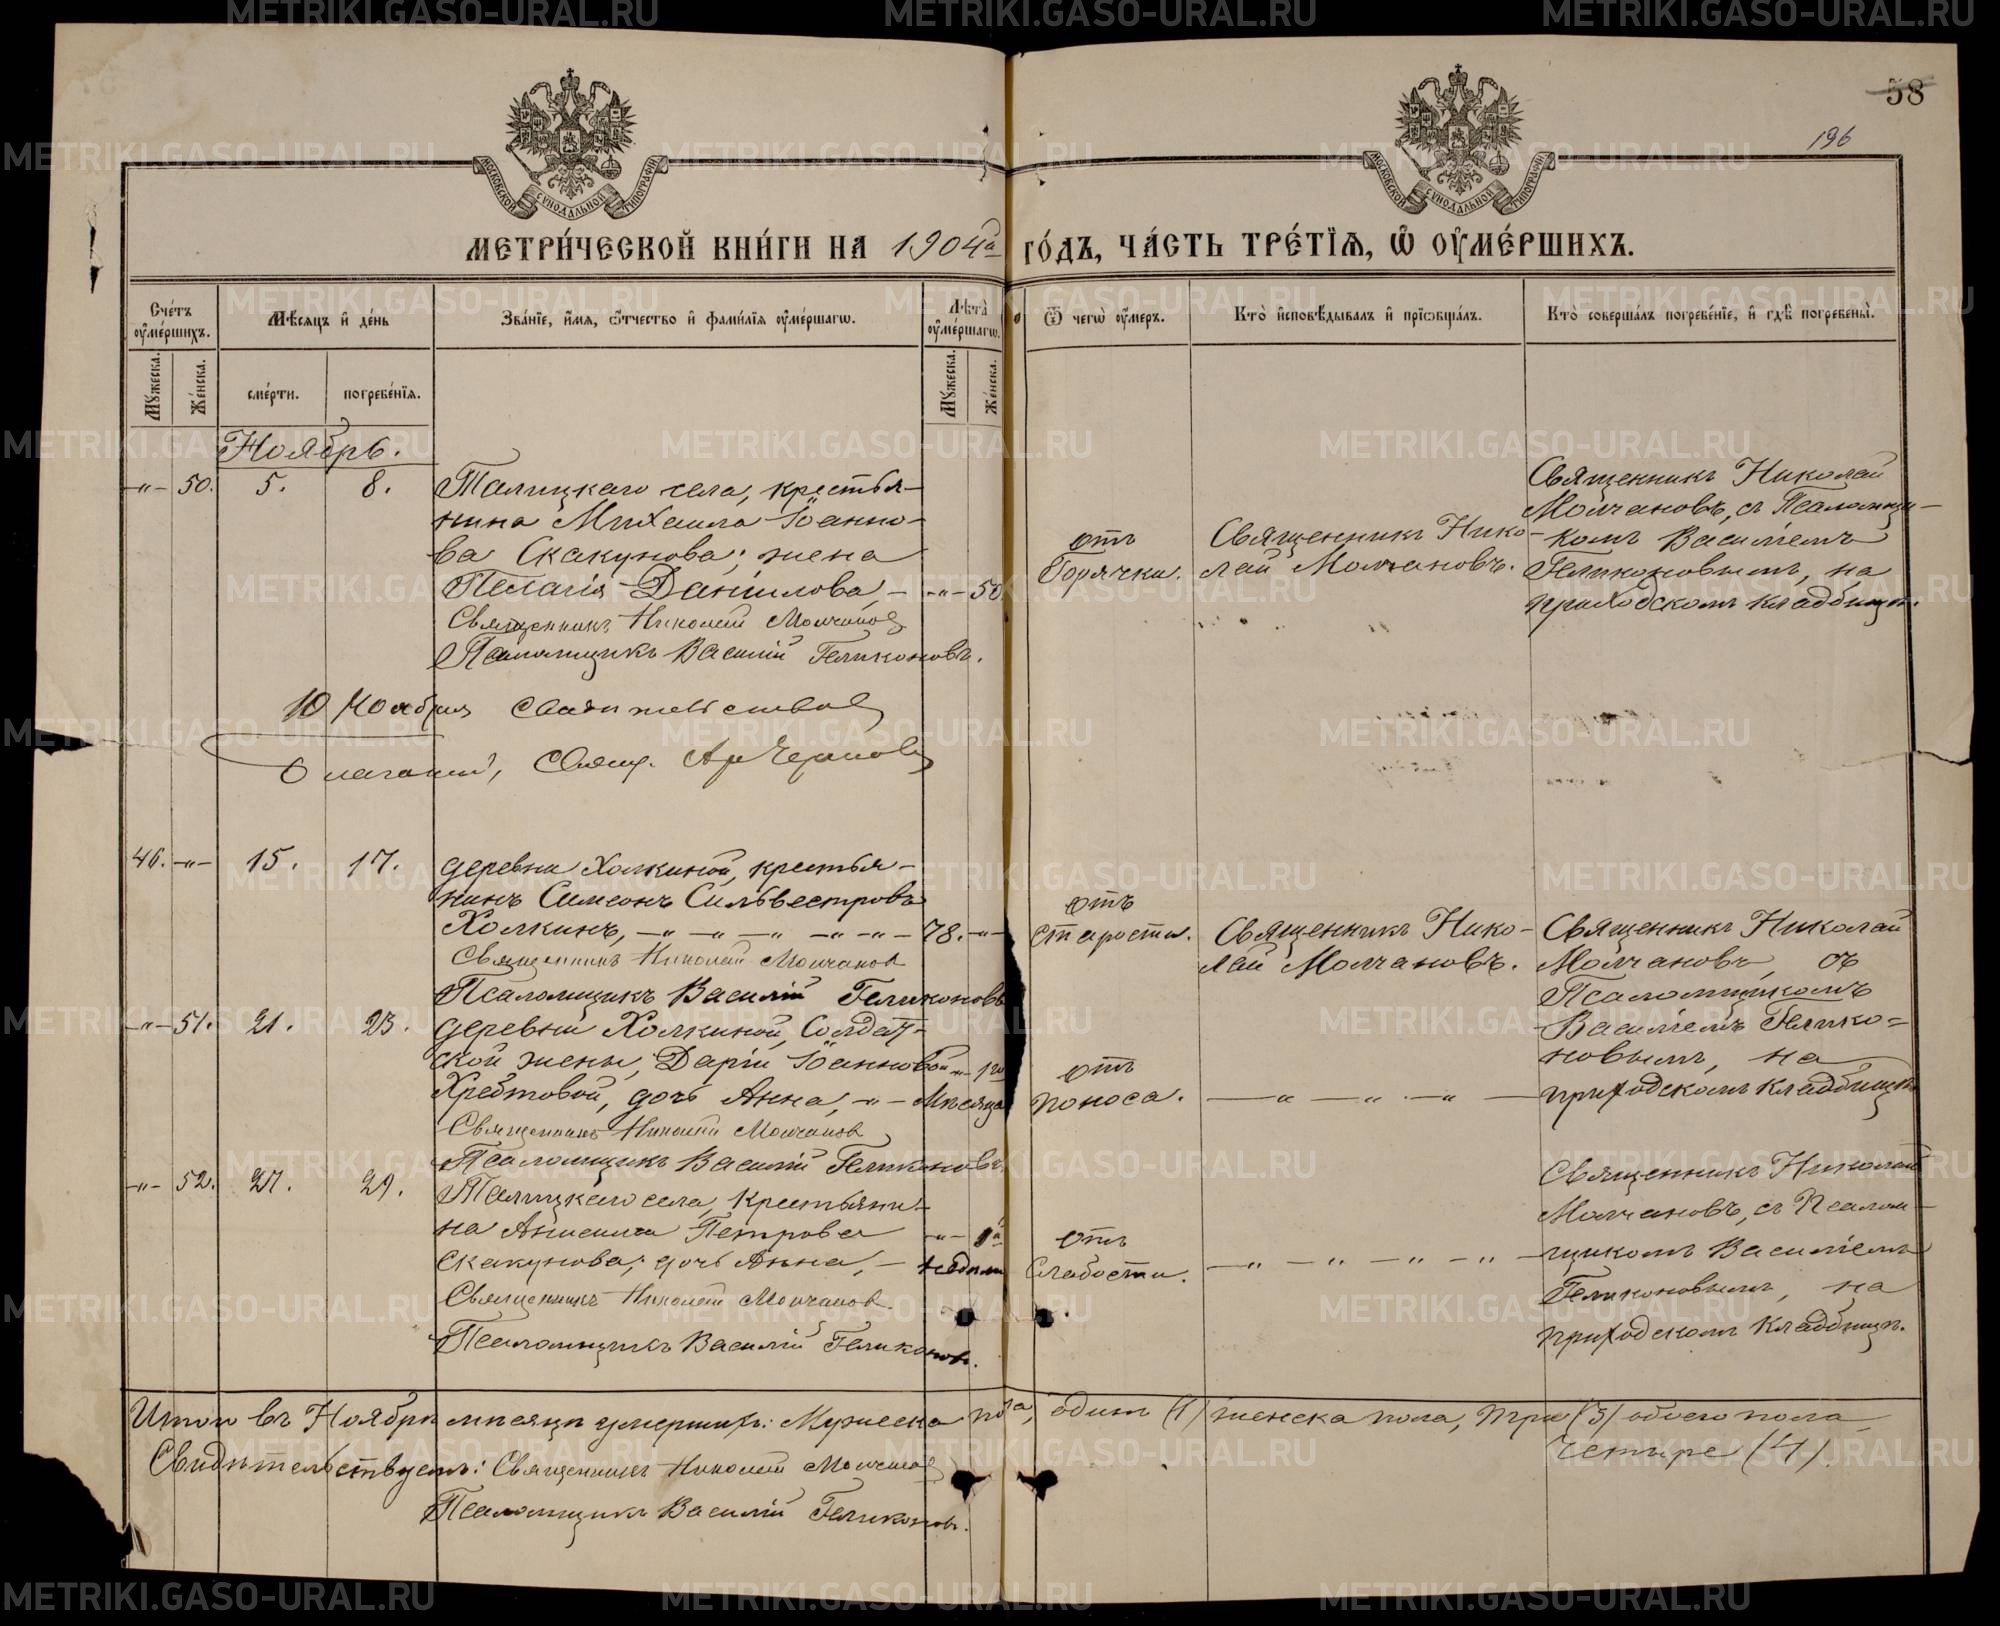 58
196
МОСКОВСКОЙ СѴНОДАЛЬНОЙ ТИПОГРАФІИ
МОСКОВСКОЙ СѴНОДАЛЬНОЙ ТИПОГРАФІИ
МЕТРИ́ЧЕСКОЙ КНИ́ГИ НА 1904й ГО́ДЪ, ЧА́СТЬ ТРЕ́ТІЯ, Ѡ ОУ҆МЕ́РШИХЪ.
Сче́тъ оу҆ме́ршихъ.
Мѣ́сяцъ и҆ де́нь
Зва́нїе, и҆́мя, ѻ҆́тчество и҆ фами́лїя оу҆ме́ршагѡ.
Лѣ́та оу҆ме́ршагѡ.
Ѿ чегѡ̀ оу҆́меръ.
Кто̀ и҆сповѣ́дывалъ и҆ прїѡбща́лъ.
Кто̀ соверша́лъ погребе́нїе, и҆ гдѣ̀ погребены̀.
Му́жеска.
Же́нска.
сме́рти.
погребе́нїя.
Му́жеска.
Же́нска.
Ноябрь.
-„- 50. 5. 8.
Талицкаго села, крестья-
нина Михаила Іоанно-
ва Скакунова, жена
Пелагія Даніилова, - -„- 50
Священникъ Николай Молчановъ
Псаломщикъ Василій Геликоновъ.
отъ
Горячки.
Священникъ Нико-
лай Молчановъ.
Священникъ Николай
Молчановъ, съ Псаломщи-
комъ Василіемъ
Геликоновымъ, на
приходскомъ кладбищѣ.
10 Ноября свидѣтельствовалъ
Благочинный, Свящ.
46. -„- 15. 17.
деревни Холкиной, крестья-
нинъ Симеонъ Сильвестровъ
Холкинъ, -„- -„- -„- 78. -„-
Священникъ Николай Молчановъ
Псаломщикъ Василій Геликоновъ
отъ
старости.
Священникъ Нико-
лай Молчановъ.
Священникъ Николай
Молчановъ, съ
Псаломщикомъ
Василіемъ Гелико=
новымъ, на
приходскомъ кладбищѣ
-„- 51. 21. 23.
деревни Холкиной, Солдат-
ской жены, Даріи Іоанновой -„- 1го
Хребтовой, дочь Анна, -„- Мѣсяца
Священникъ Николай Молчановъ
Псаломщикъ Василій Геликоновъ.
отъ
поноса.
-„- -„- -„-
-„- 52. 27. 29.
Талицкаго села, крестьяни-
на Анисима Петрова -„-
Скакунова, дочь Анна, - недѣли
Священникъ Николай Молчановъ.
Псаломщикъ Василій Геликоновъ.
отъ
Слабости.
-„- -„- -„- -„-
Священникъ Николай
Молчановъ, съ Псалом-
щикомъ Василіемъ
Геликоновымъ, на
приходскомъ кладбищѣ.
Итого въ Ноябрѣ мѣсяцѣ умершихъ: Мужеска пола, одинъ (1) женска пола, три (3) обоего пола
четыре (4).
Свидѣтельствуемъ: Священникъ Николай Молчановъ
Псаломщикъ Василій Геликоновъ.
METRIKI.GASO-URAL.RU